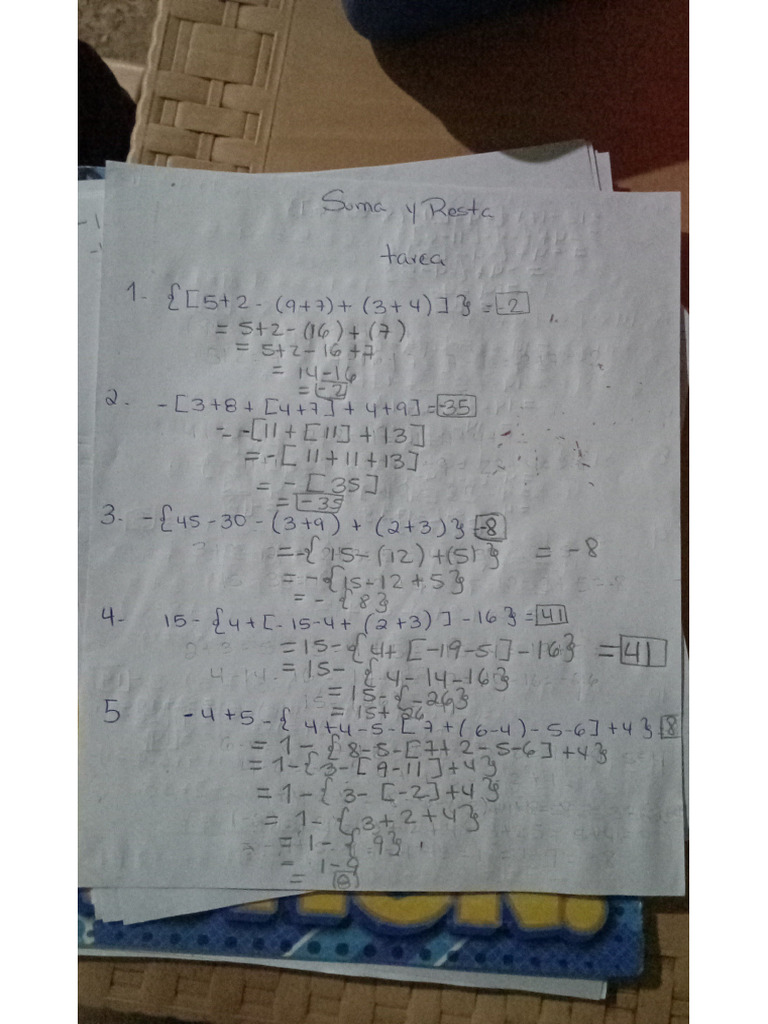 Suma y Resta
tarea
1. {[5+2-(9+7)+(3+4)]} = -2
= 5+2-(16)+(7)
= 5+2-16+7
= 14-16
= -2
2. -[3+8+[4+7]+4+9] = -35
= -[11+[11]+13]
= -[11+11+13]
= -[35]
= -35
3. -{45-30-(3+9)+(2+3)} -8
= -{15-(12)+(5)} = -8
= -{15-12+5}
= -{8}
4- 15-{4+[-15-4+(2+3)]-16} = 41
= 15-{4+[-19-5]-16} = 41
= 15-{4-14-16}
= 15-{-26}
= 15+26
5 -4+5-{4+4-5-[7+(6-4)-5-6]+4} 8
= 1-{8-5-[7+2-5-6]+4}
= 1-{3-[9-11]+4}
= 1-{3-[-2]+4}
= 1-{3+2+4}
= 1-{9}
= 1-9
= 8